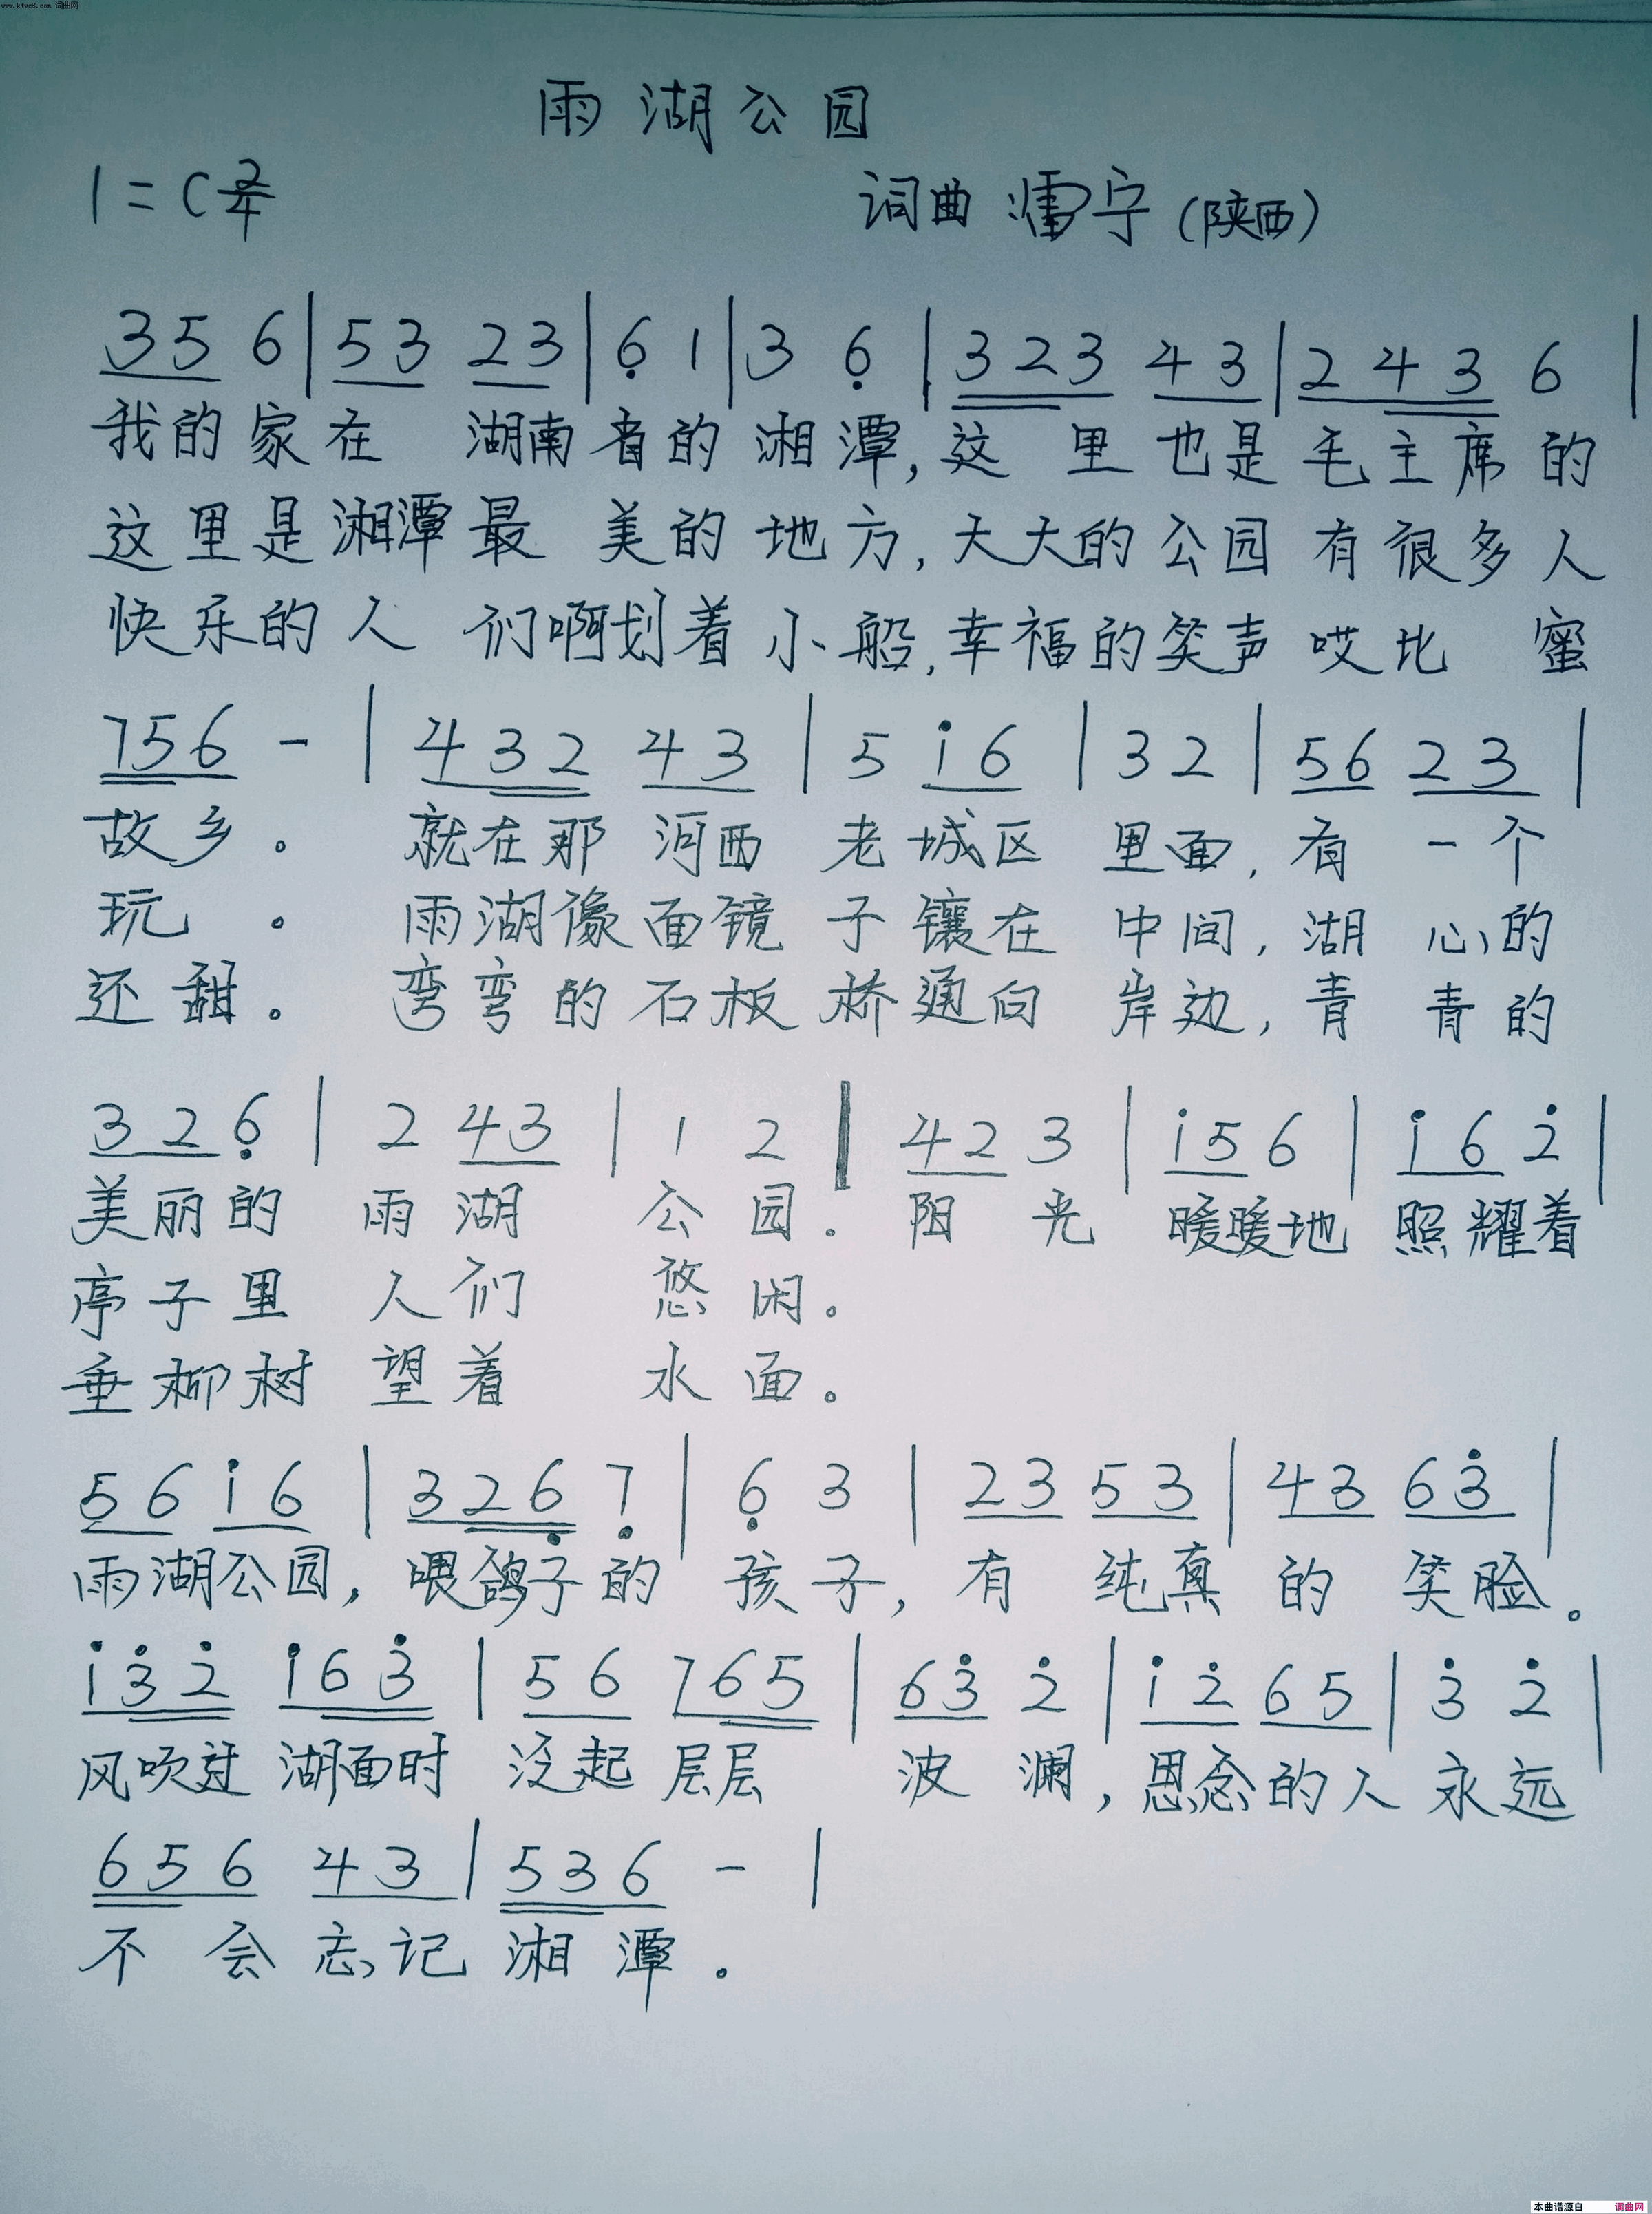 www.ktvc8.com 词曲网
雨湖公园
1=C 2/4 词曲 宁(陕西)
3 5 6 | 5 3 2 3 | 6̣ 1 | 3 6̣ | 3 2 3 4 3 | 2 4 3 6 |
我的家在 湖南省的湘潭,这里也是毛主席的
这里是湘潭最美的地方,大大的公园有很多人
快乐的人们啊划着小船,幸福的笑声哎比蜜
7 5 6 - | 4 3 2 4 3 | 5 i 6 | 3 2 | 5 6 2 3 |
故乡。 就在那河西老城区里面,有一个
玩。 雨湖像面镜子镶在中间,湖心的
还甜。 弯弯的石板桥通向岸边,青青的
3 2 6̣ | 2 4 3 | 1 2 | 4 2 3 | i 5 6 | i 6 2̇ |
美丽的雨湖公园. 阳光暖暖地照耀着
亭子里人们悠闲。
垂柳树望着水面。
5 6 i 6 | 3 2 6̣ 7̣ | 6̣ 3 | 2 3 5 3 | 4 3 6 3̇ |
雨湖公园,喂鸽子的孩子,有纯真的笑脸。
i 3̇ 2̇ i 6 3̇ | 5 6 7 6 5 | 6 3̇ 2̇ | i 2̇ 6 5 | 3̇ 2̇ |
风吹过湖面时泛起层层波澜,思念的人永远
6 5 6 4 3 | 5 3 6 - |
不会忘记湘潭.
本曲谱源自 词曲网